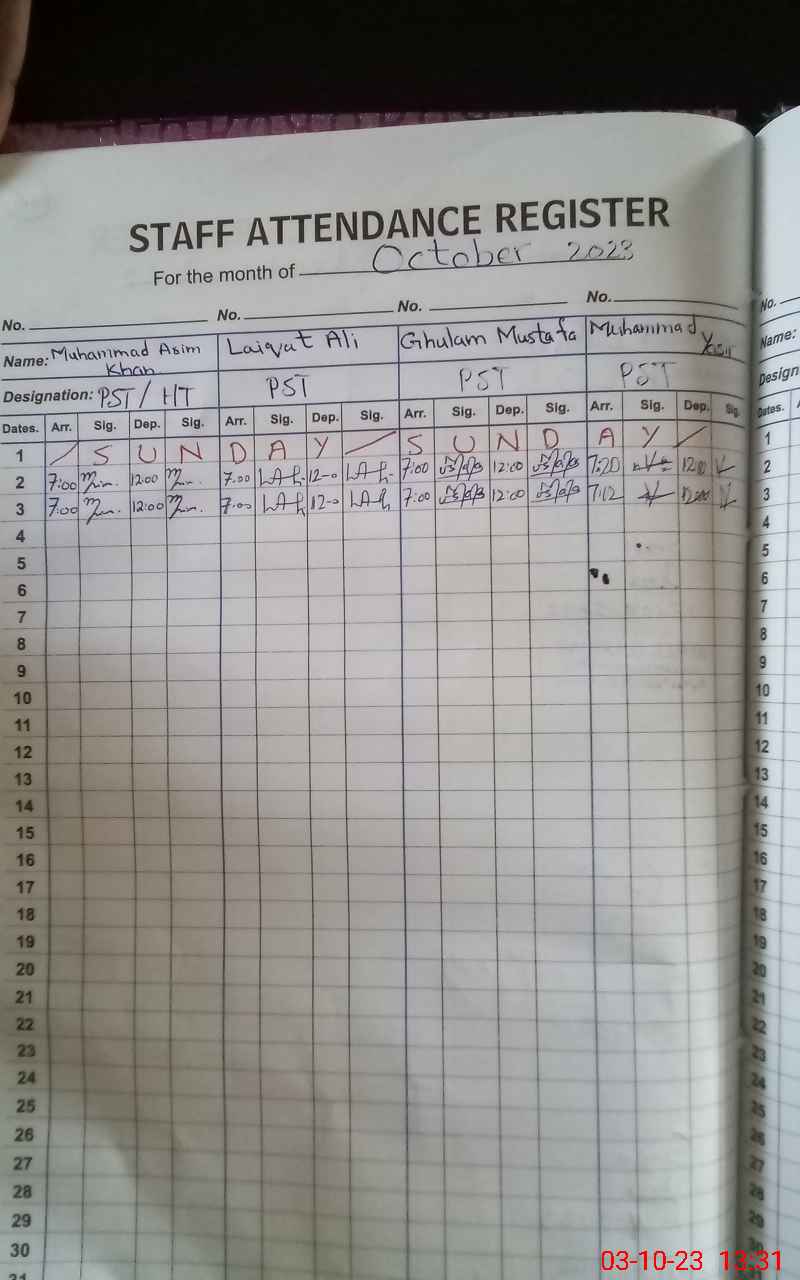 STAFF ATTENDANCE REGISTER
For the month of October 2023
No. No. No. No.
Name: Muhammad Asim Khan Laiqat Ali Ghulam Mustafa Muhammad Yasir
Designation: PST/HT PST PST PST
Dates. Arr. Sig. Dep. Sig. Arr. Sig. Dep. Sig. Arr. Sig. Dep. Sig. Arr. Sig. Dep. Sig.
1 / S U N D A Y / S U N D A Y /
2 7:00 12:00 7:00 12-0 7:00 12:00 7:20 12:00
3 7:00 12:00 7:00 12-0 7:00 12:00 7:12 12:00
4
5
6
7
8
9
10
11
12
13
14
15
16
17
18
19
20
21
22
23
24
25
26
27
28
29
30
31
No.
Name:
Design
Dates.
1
2
3
4
5
6
7
8
9
10
11
12
13
14
15
16
17
18
19
20
21
22
23
24
25
26
27
28
29
30
03-10-23 13:31